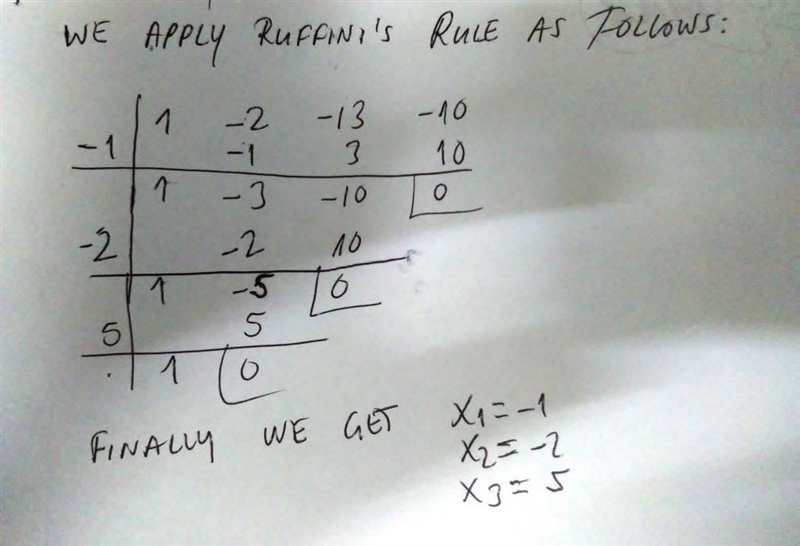 WE APPLY RUFFINI'S RULE AS FOLLOWS:
1 -2 -13 -10
-1 -1 3 10
1 -3 -10 0
-2 -2 10
1 -5 0
5 5
1 0
FINALLY WE GET x1 = -1
x2 = -2
x3 = 5